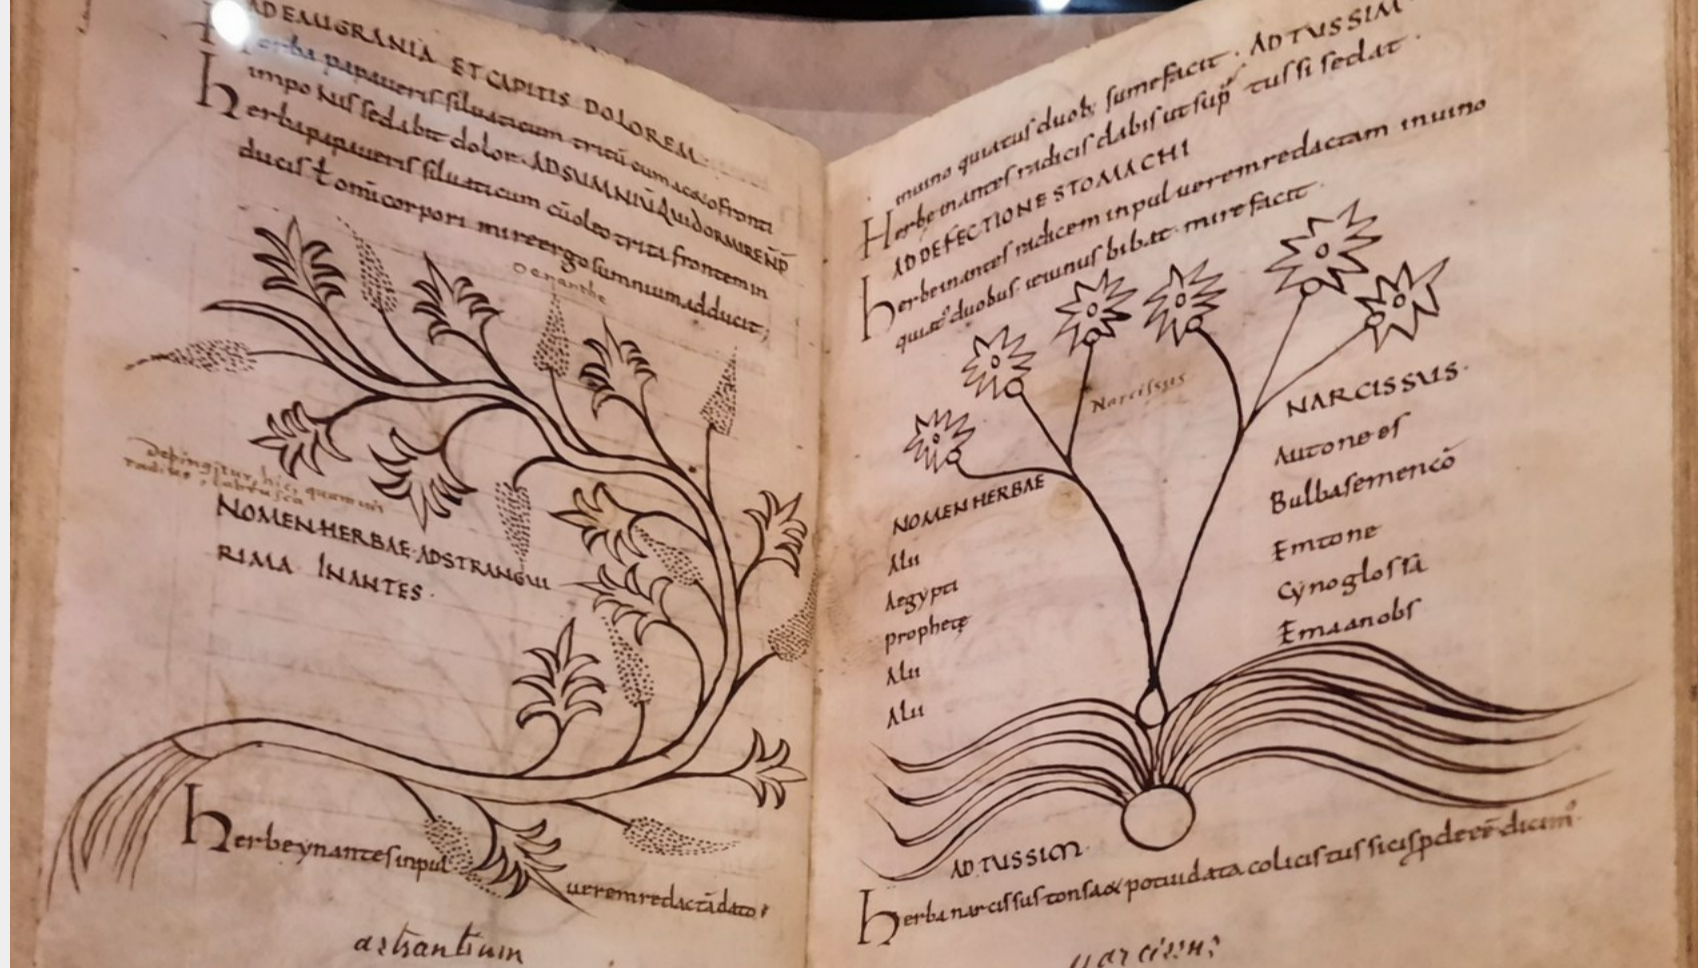 AD EMIGRANIA ET CAPITIS DOLOREM
Herba papaueris siluaticum tritū cum aceto fronti
impo Nis sedabit dolor. AD SUMNIŪ Qui DORMIRE NP̄
herba papaueris siluaticum cū oleo triti frontem in
ducis ł omī corpori mire ergo sumnium adducit;
oenanthe
Depingitur hic, quam uis
radius, labrusca
NOMEN HERBAE ADSTRANGUI
RIMA INANTES.
herbe ynantes in pul
uerem redactā dato;
astrantium
inuino quiatus duob; sumefacit. AD TUSSIM
Herbe inantes radicis dabis ut sup̄ tussi sedat.
AD DEFECTIONE STOMACHI
herbe inantes radicem in puluerem redactam in uino
quiat duobus ieiunus bibat mirefacit.
Narcissus
NOMEN HERBAE
Alii
Aegypti
prophete
Alii
Alii
NARCISSUS.
Autone es
Bulbasemencō
Emtone
Cynoglossa
Emaanobs
AD TUSSIM.
herba narcissus tonsa potui data colicis tussicis
narcissus